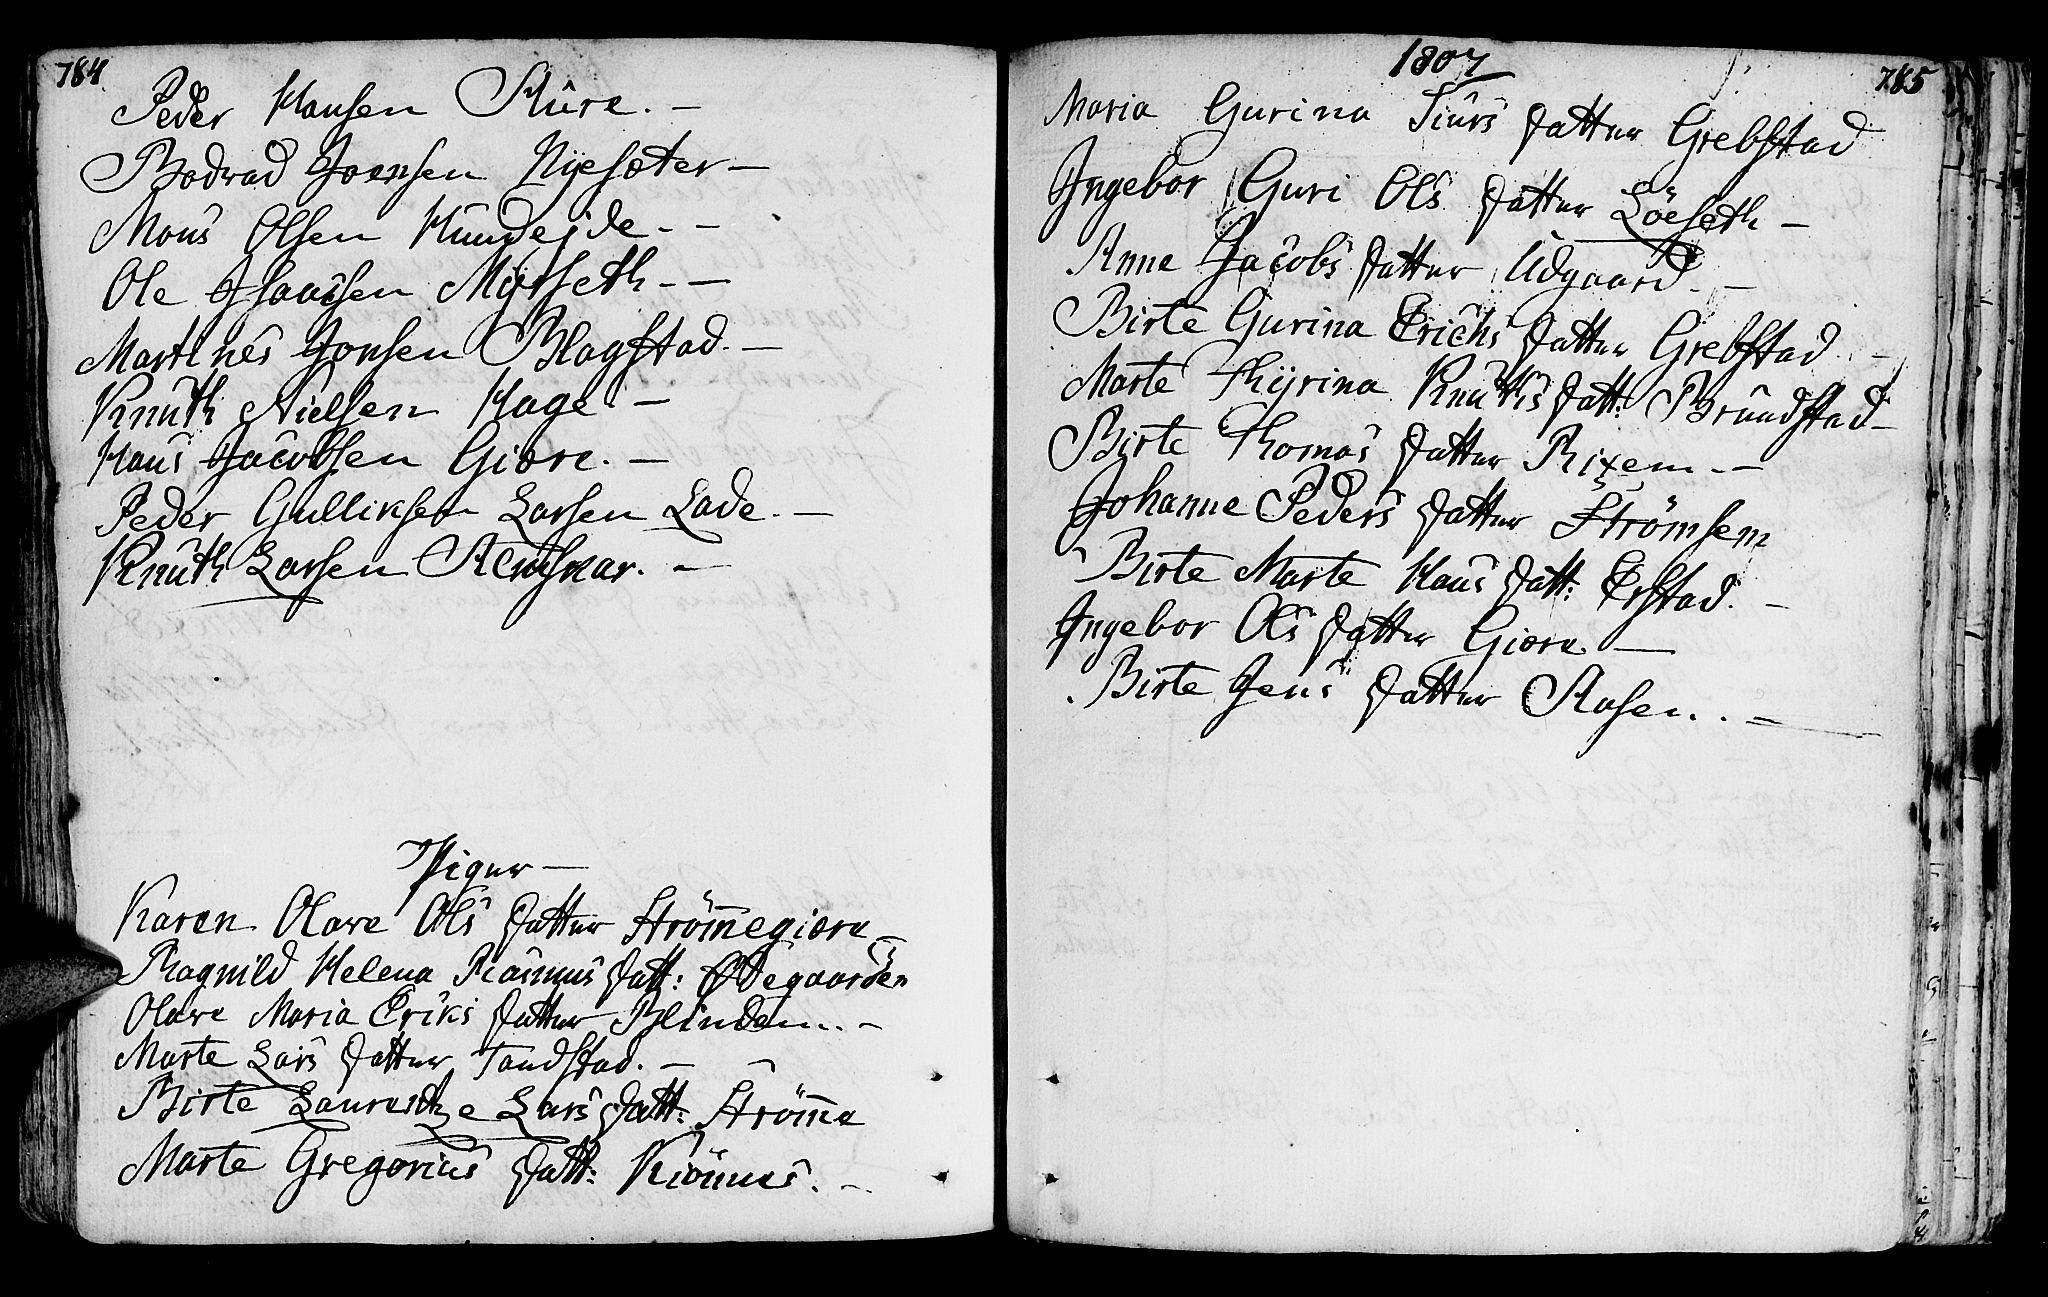 784.
Peder Hansen Aure. -
Bodvad Joensen Nÿesæter -
Mons Olsen Hundejde. -
Ole Isaacsen Myrseth - -
Martines Jonsen Blagstad. -
Knuth Nielsen Hage. -
Hans Jacobsen Giære. -
Peder Gulliksen Larsen Lade. -
Knuth Larsen -
Piger -
Karen Olave Ols datter Strömegiære -
Ragnild Helena Rasmus datt: Ødegaarden
Olave Maria Eriks datter Blinden. -
Marte Lars datter Tandstad. -
Birte Laurentze Lars datt: Ström̅e
Marte Gregorius datt: Kiönnes. -
1807
785
Maria Gurina Siurs datter Grebstad
Ingebor Guri Ols datter Löeseth -
Anne Jacobs datter Udgaard. -
Birte Gurina Erichs datter Grebstad -
Marte Thÿrina Knuths datt: Brundstad -
Birte Thomas datter Rixem. -
Johanne Peders datter Strömsem
Birte Marte Hans datt: Erstad. -
Ingebor Ols datter Giære -
Birte Jens datter Aasen. . -